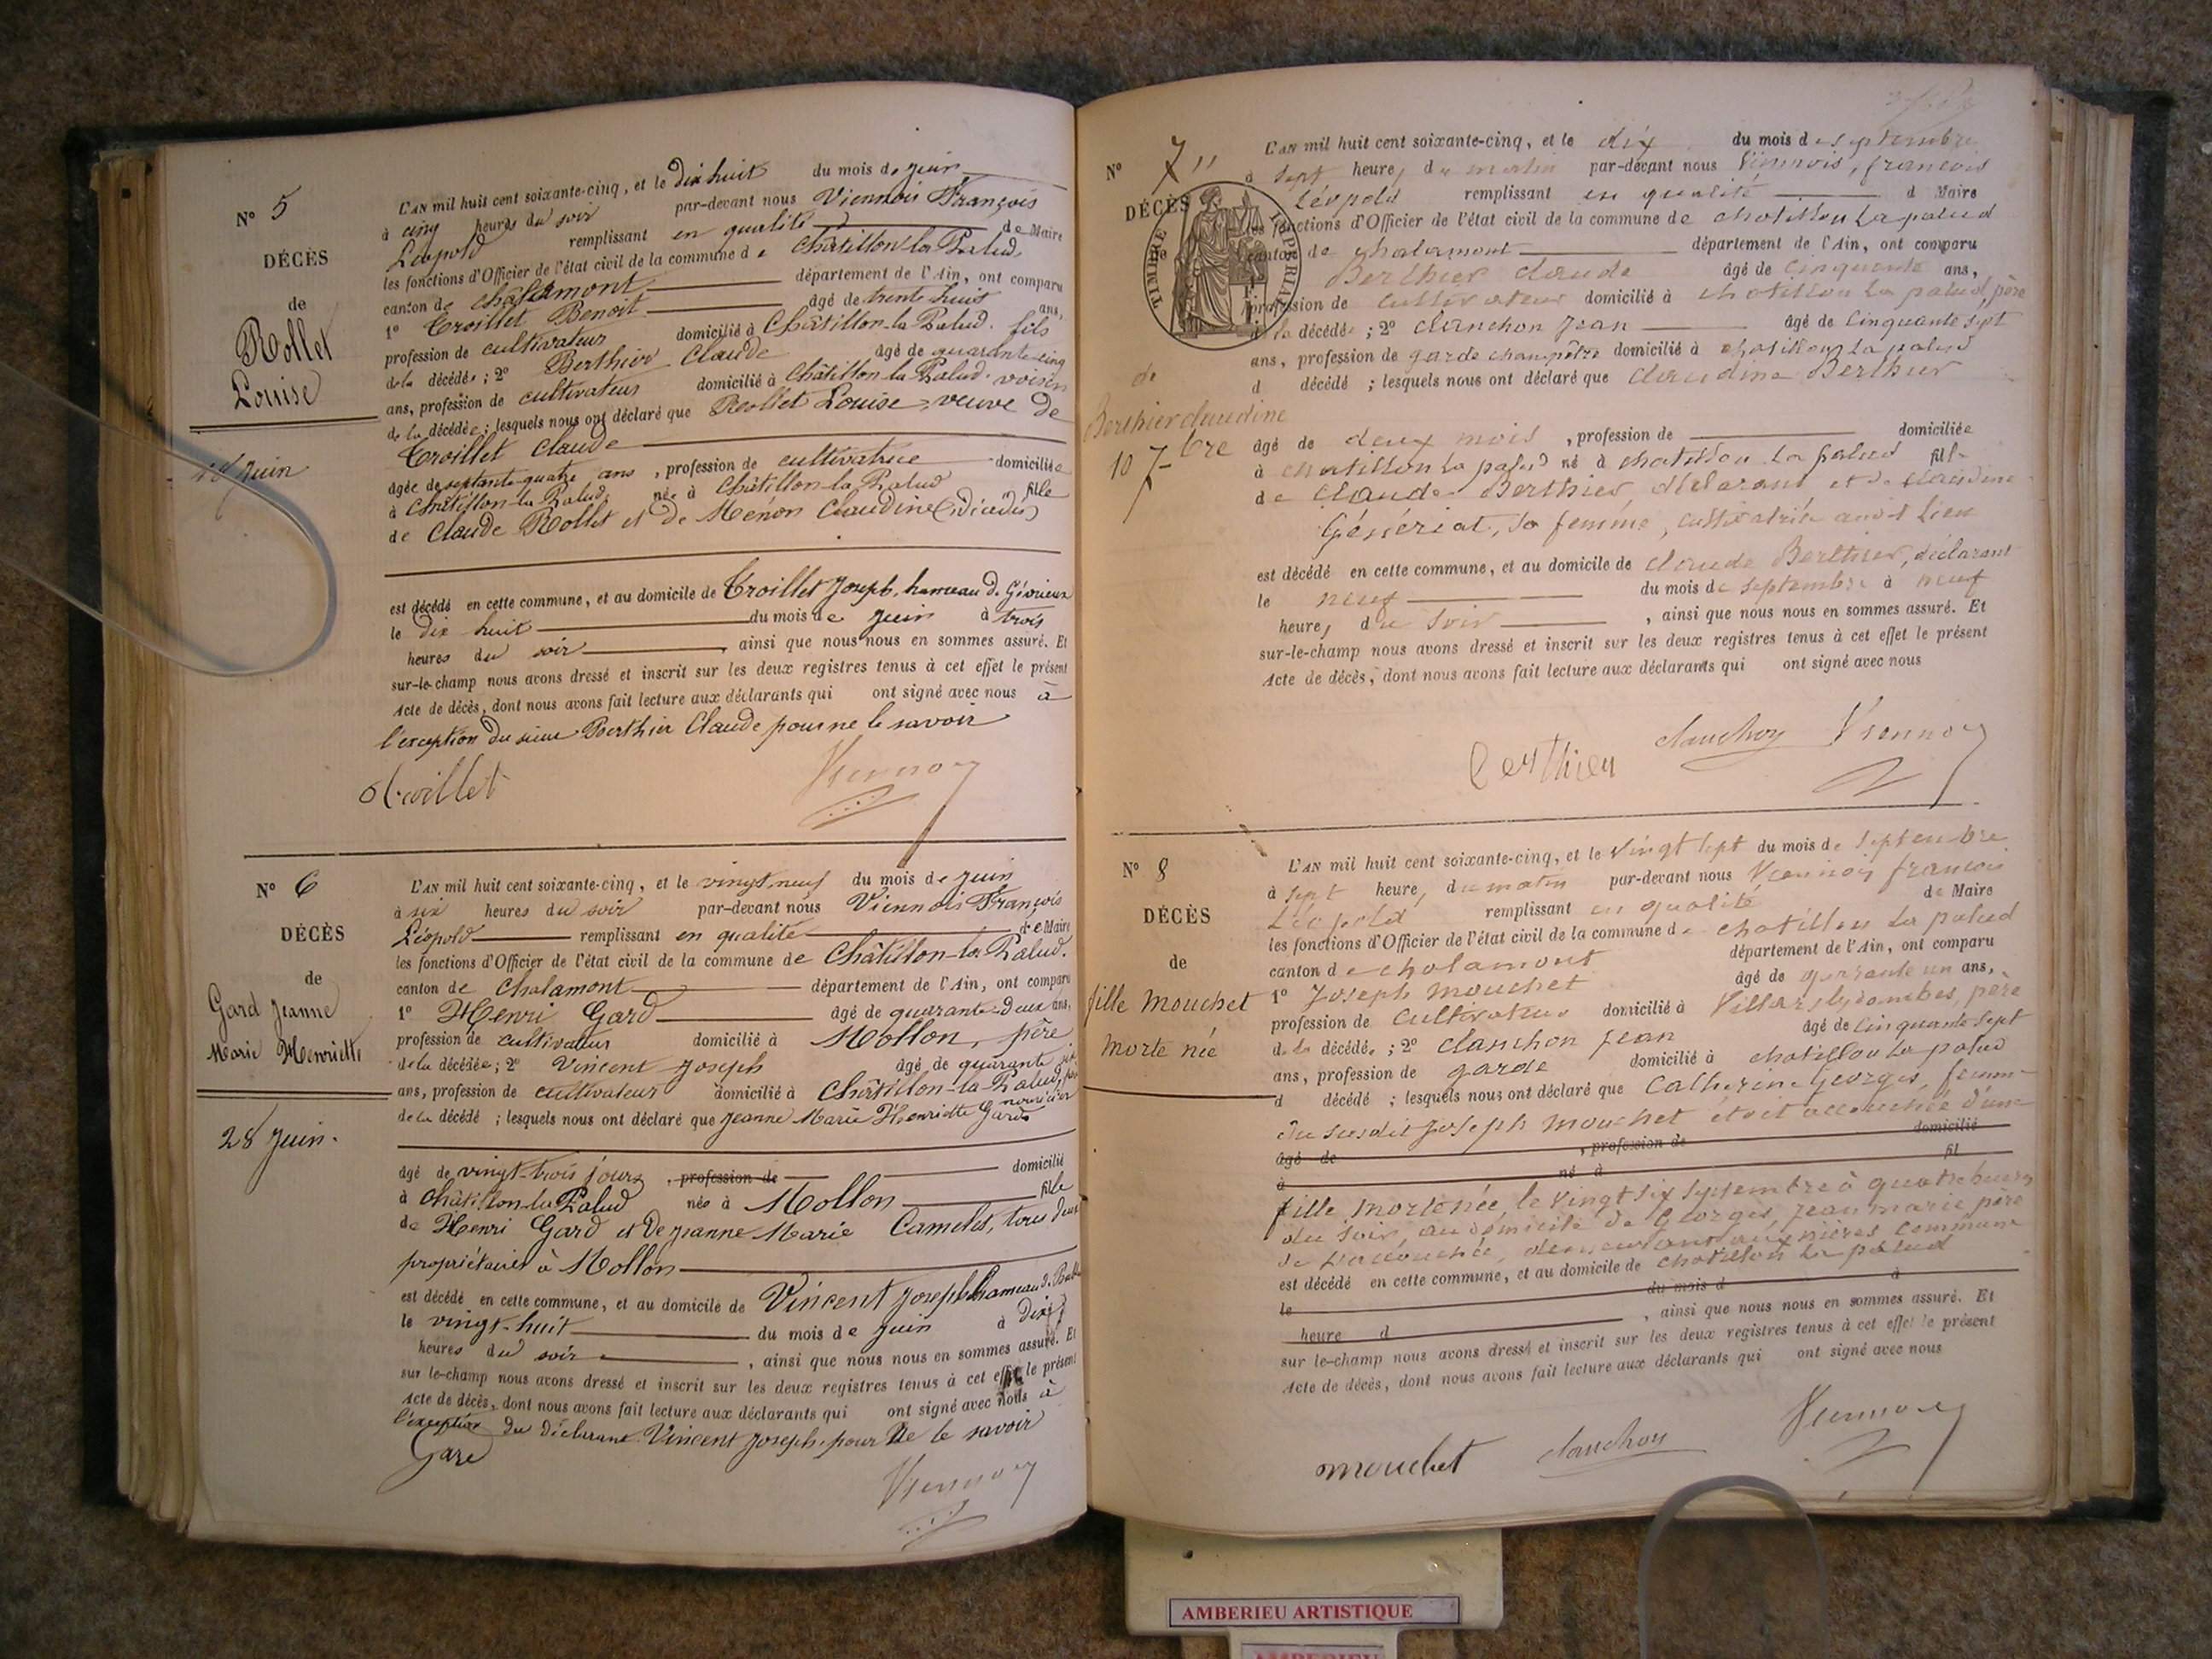 N° 5
DÉCÈS
de
Rollet
Louise
18 Juin
L'AN mil huit cent soixante-cinq, et le dix huit du mois de juin
à cinq heures du soir par-devant nous Viennois François
Léopold remplissant en qualité de Maire
les fonctions d'Officier de l'état civil de la commune de Châtillon-la-Palud,
canton de Chalamont département de l'Ain, ont comparu
1° Troillet Benoit âgé de trente huit ans,
profession de cultivateur domicilié à Châtillon-la-Palud. fils
de la décédée ; 2° Berthier Claude âgé de quarante-cinq
ans, profession de cultivateur domicilié à Châtillon-la-Palud. voisin
de la décédée ; lesquels nous ont déclaré que Rollet Louise, veuve de
Troillet Claude
âgée de septante-quatre ans, profession de cultivatrice domiciliée
à Châtillon-la-Palud, née à Châtillon-la-Palud fille
de Claude Rollet et de Menon Claudine (décédés)
est décédé en cette commune, et au domicile de Troillet Joseph, hameau de Gévrieux
le dix huit du mois de juin à trois
heures du soir, ainsi que nous nous en sommes assuré. Et
sur-le-champ nous avons dressé et inscrit sur les deux registres tenus à cet effet le présent
Acte de décès, dont nous avons fait lecture aux déclarants qui ont signé avec nous à
l'exception du sieur Berthier Claude pour ne le savoir
Troillet Viennois
N° 6
DÉCÈS
de
Gard Jeanne
Marie Henriette
28 Juin.
L'AN mil huit cent soixante-cinq, et le vingt neuf du mois de juin
à six heures du soir par-devant nous Viennois François
Léopold remplissant en qualité de Maire
les fonctions d'Officier de l'état civil de la commune de Châtillon-la-Palud.
canton de Chalamont département de l'Ain, ont comparu
1° Henri Gard âgé de quarante-deux ans,
profession de cultivateur domicilié à Mollon, père
de la décédée ; 2° Vincent Joseph âgé de quarante
ans, profession de cultivateur domicilié à Châtillon-la-Palud, père
nourricier
de la décédé ; lesquels nous ont déclaré que Jeanne Marie Henriette Gard
âgé de vingt-trois jours, profession de domicilié
à Châtillon-la-Palud née à Mollon fille
de Henri Gard et de Jeanne Marie Camelet, tous deux
propriétaires à Mollon
est décédé en cette commune, et au domicile de Vincent Joseph hameau de
le vingt-huit du mois de juin à dix
heures du soir, ainsi que nous nous en sommes assuré. Et
sur le-champ nous avons dressé et inscrit sur les deux registres tenus à cet effet le présent
Acte de décès, dont nous avons fait lecture aux déclarants qui ont signé avec nous à
l'exception du déclarant Vincent Joseph, pour ne le savoir
Gard
Viennois
N° 7
DÉCÈS
de
TIMBRE IMPÉRIAL
de
Berthier claudine
10 7bre
L'AN mil huit cent soixante-cinq, et le dix du mois de septembre
à sept heures du matin par-devant nous Viennois, francois
Léopold remplissant en qualité d Maire
les fonctions d'Officier de l'état civil de la commune de chatillon la palud
canton de chalamont département de l'Ain, ont comparu
Berthier claude âgé de cinquante ans,
profession de cultivateur domicilié à chatillon la palud, père
de la décédée ; 2° clanchon jean âgé de cinquante sept
ans, profession de garde champêtre domicilié à chatillon la palud
d décédé ; lesquels nous ont déclaré que claudine Berthier
âgé de deux mois, profession de domiciliée
à chatillon la palud né à chatillon la palud fille
de claude Berthier, déclarant et de claudine
Génériat, sa femme, cultivatrice audit lieu
est décédé en cette commune, et au domicile de claude Berthier, déclarant
le neuf du mois de septembre à neuf
heures du soir, ainsi que nous nous en sommes assuré. Et
sur-le-champ nous avons dressé et inscrit sur les deux registres tenus à cet effet le présent
Acte de décès, dont nous avons fait lecture aux déclarants qui ont signé avec nous
Berthier clanchon Viennois
N° 8
DÉCÈS
de
fille Mouchet
Morte née
L'AN mil huit cent soixante-cinq, et le vingt sept du mois de septembre
à sept heures du matin par-devant nous Viennois francois
Léopold remplissant en qualité de Maire
les fonctions d'Officier de l'état civil de la commune de chatillon la palud
canton de chalamont département de l'Ain, ont comparu
1° Joseph Mouchet âgé de quarante un ans,
profession de cultivateur domicilié à Villars les dombes, père
de la décédée ; 2° clanchon jean âgé de cinquante sept
ans, profession de garde domicilié à chatillon la palud
d décédé ; lesquels nous ont déclaré que Catherine Georges, femme
du susdit Joseph Mouchet étoit accouchée d'une
âgé de, profession de domicilié
à né à fil
fille mortenée, le vingt six septembre à quatre heures
du soir, au domicile de Georges, jean marie père
de l'accouchée, demeurant aux nières commune
est décédé en cette commune, et au domicile de chatillon la palud
le du mois d à
heure d, ainsi que nous nous en sommes assuré. Et
sur le-champ nous avons dressé et inscrit sur les deux registres tenus à cet effet le présent
Acte de décès, dont nous avons fait lecture aux déclarants qui ont signé avec nous
mouchet clanchon Viennois
AMBERIEU ARTISTIQUE
AMBERIEU